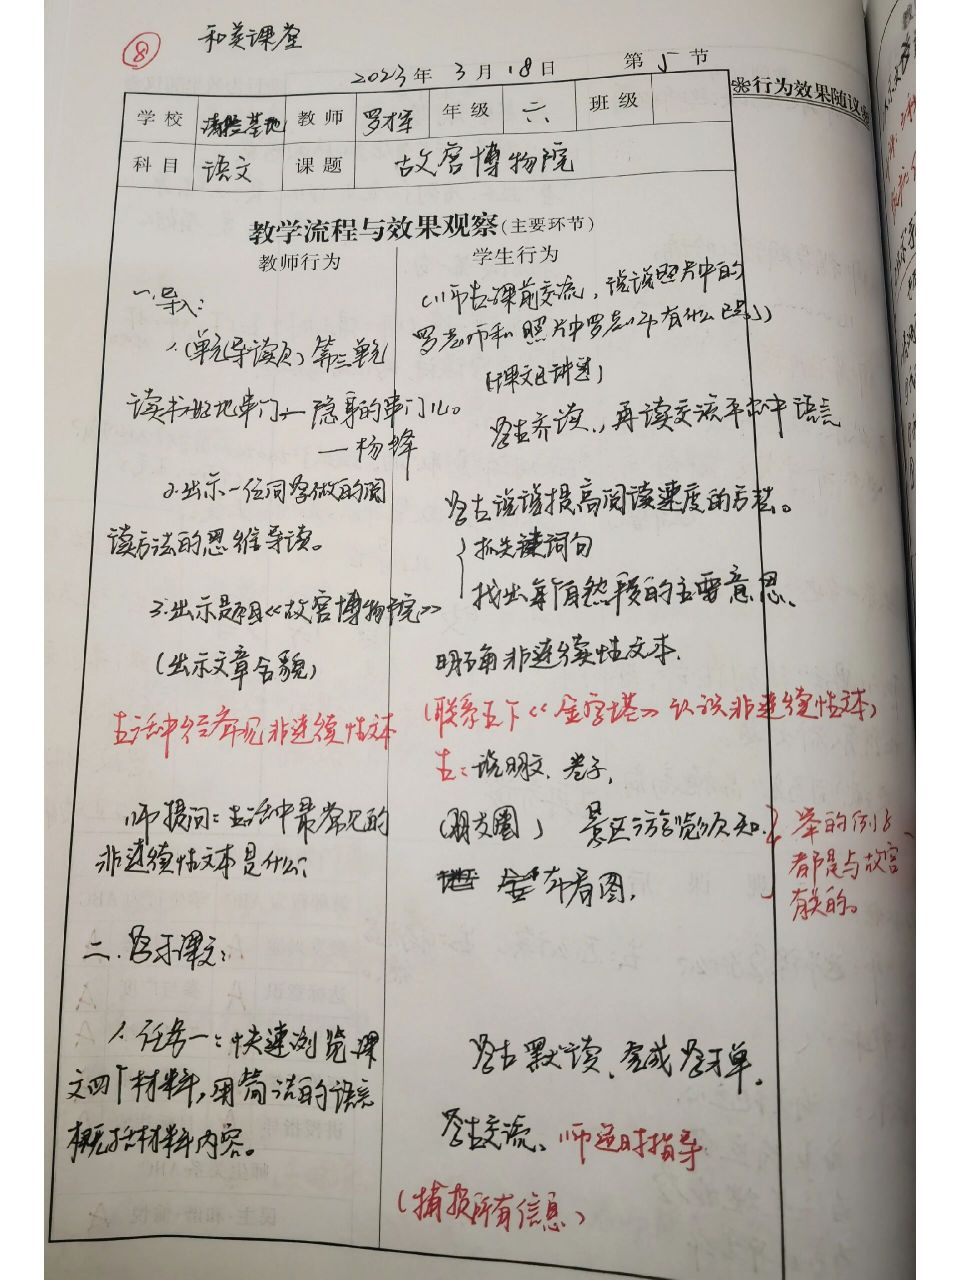 ⑧ 和美课堂
2023年 3月 18日 第 5 节
❀行为效果随议❀
学校 教师 罗才军 年级 六 班级
科目 语文 课题 故宫博物院
教学流程与效果观察(主要环节)
教师行为 学生行为
一.导入:
1.(单元导读页)第三单元
读书好比串门儿—隐身的串门儿。
—杨绛
2.出示一位同学做的阅
读方法的思维导读。
3.出示题目《故宫博物院》
(出示文章全貌)
生活中经常见非连续性文本
师提问:生活中最常见的
非连续性文本是什么?
二.学习课文:
1.任务一:快速浏览课
文四个材料,用简洁的语言
概括材料内容。
(师生课前交流,说说照片中的
罗老师和照片中罗老师有什么
学生齐读,再读交流
学生说说提高阅读速度的方法。
抓关键词句
找出每个自然段的主要意思、
明确非连续性文本.
(联系五下《金字塔》认识非连续性文本)
生:说明文、卷子,
(朋友圈) 景区游览须知.
举的例子
都是与故宫
有关的。
学生默读、完成学习单.
学生交流、师适时指导
(捕捉所有信息)